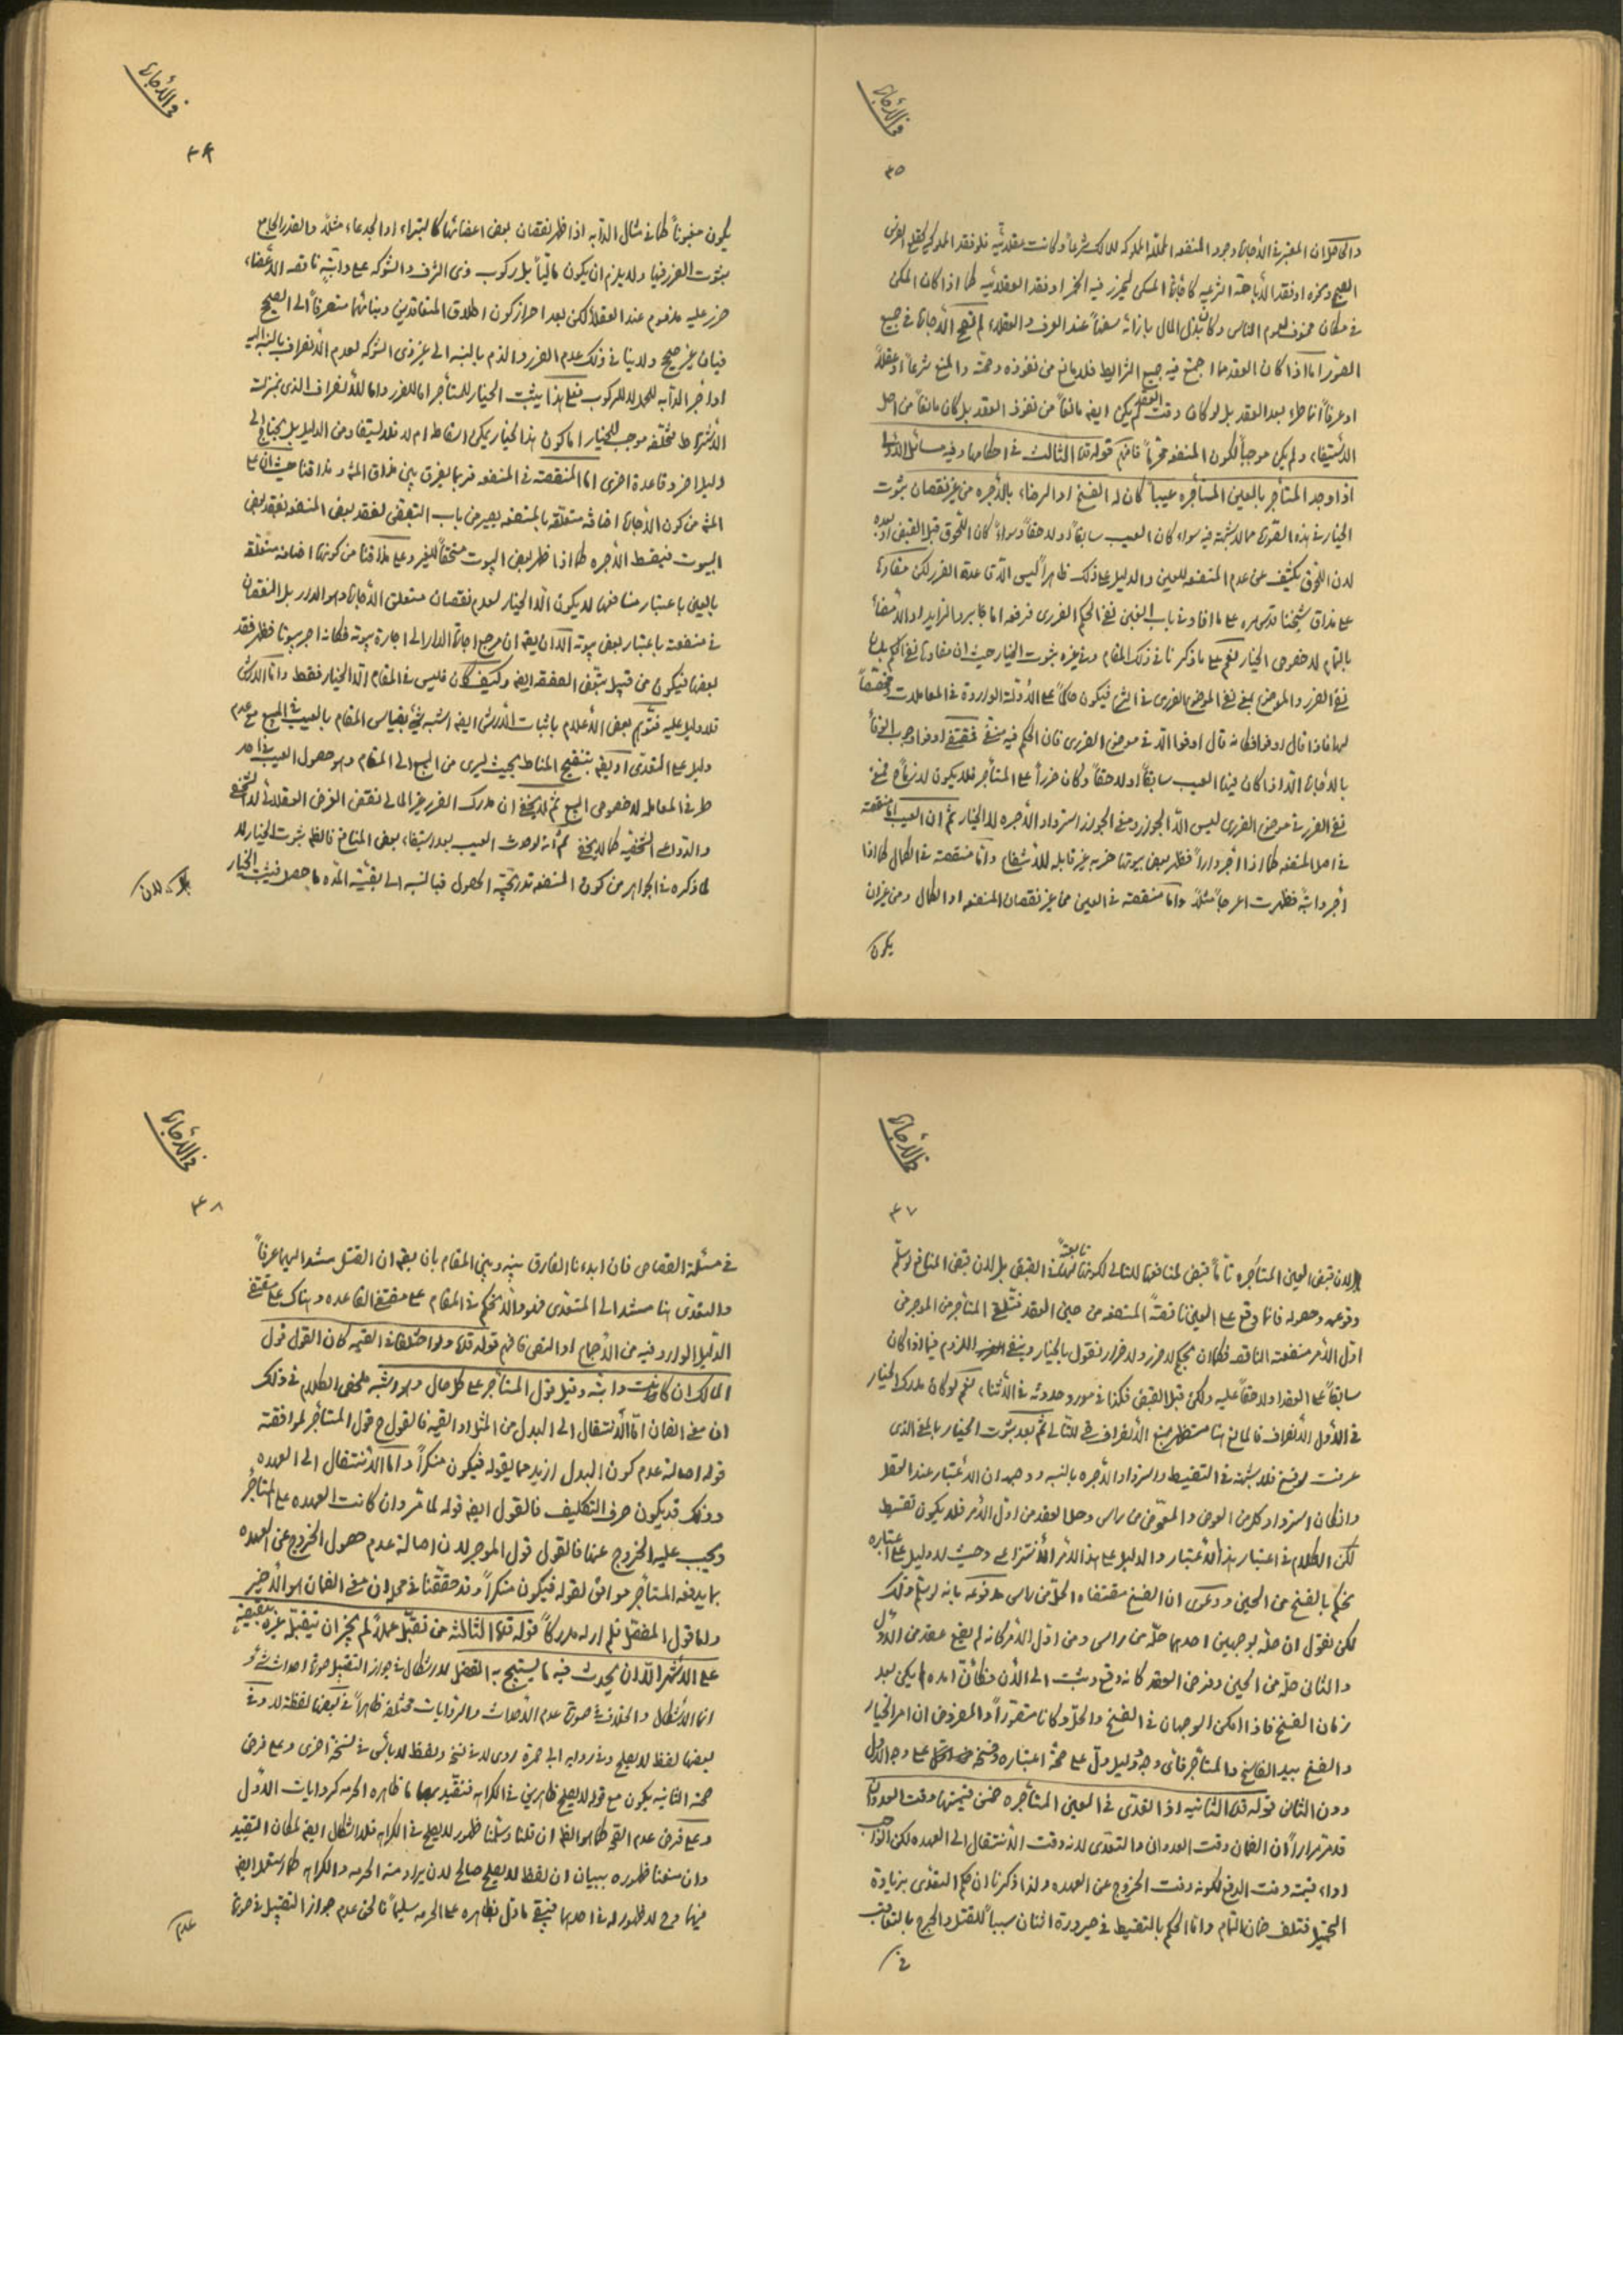 في الأجارة
٣٥
والحاصل ان المعتبر في الأجارة وجود المنفعة المحللة المملوكة للمالك شرعاً وكانت عقلائية فلو فقد المملوكية لقلع الضرس
الصحيح ونحوه او فقد الأباحة الشرعيه كاجارة المسكن ليحرز فيه الخمر او فقد العقلائيه كما اذا كان المسكن
في مكان مخوف لعموم الناس وكان بذل المال بازائه سفهاً عند العرف والعقلاء لم تصح الأجارة في جميع
الصور اما اذا كان العقد مما اجتمع فيه جميع الشرايط فلا مانع من نفوذه وصحته والمنع شرعاً او عقلاً
او عرفاً انما طرء بعد العقد بل لو كان وقت العقد لم يكن ايضه مانعاً من نفوذ العقد بل كان مانعاً من اصل
الأستيفاء ولم يكن موجباً لكون المنفعه محرماً فافهم قوله قده الثالث في احكامها وفيه مسائل الأولى
اذا وجد المستأجر بالعين المستأجره عيباً كان له الفسخ او الرضاء بالأجره من غير نقصان ثبوت
الخيار في هذه الصورة مما لا شبهة فيه سواء كان العيب سابقاً او لاحقاً وسواءً كان اللحوق قبل القبض او بعده
لان اللحوق يكشف عن عدم المنفعه للعين والدليل على ذلك ظاهراً ليس الا قاعدة الضرر لكن مفادها
على مذاق شيخنا قدس سره على ما افاد في باب الغبن نفي الحكم الضرري فرفعه اما بجابر دالزايد او الأمضاء
بالتمام لا خصوص الخيار نعم على ما ذكرنا في ذلك المقام وفي غيره ثبوت الخيار حيث ان مفادها نفي الحكم بلسان
نفي الضرر والموضوع بمعنى نفي الموضوع الضرري في الشرع فيكون حاكماً على الأدلة الواردة في المعاملات ومخصصاً
لها فاذا قال اوفوا فكانه قال اوفوا الا في موضوع الضرري فان الحكم فيه منفي فمقتضى اوفوا وجوب الوفاء
بالأجارة الا اذا كان فيها العيب سابقاً او لاحقاً وكان ضرراً على المستأجر فلا يكون لازماً ح فمع
نفي الضرر في موضوع الضرري ليس الا الجواز ومعنى الجواز استرداد الأجره لا الخيار ثم ان العيب اما منقصة
في اصل المنفعه كما اذا اجر داراً فظهر بعض بيوتها خربه غير قابله للأنتفاع واما منقصة في الكمال كما اذا
اجر دابة فظهرت اعرجاً مثلاً واما منقصة في العين من غير نقصان المنفعه او الكمال ومن غير ان
يكون
في الأجارة
٣٦
يكون مغبوناً كما في مثال الدابه اذا ظهر نقصان بعض اعضائها كالبتراء او الجدعاء مثلاً والقدر الجامع
ثبوت الضرر فيها ولا يلزم ان يكون مالياً بل ركوب ذي الشرف والشوكه على دابةٍ ناقصه الأعضاء
ضرر عليه مذموم عند العقلاء لكن بعد احراز كون اطلاق المتعاقدين وبنائهما منصرفاً الى الصحيح
فبان غير صحيح ولا ينافي ذلك عدم الضرر والذم بالنسبه الى غير ذي الشوكه لعدم الأنصراف بالنسبة اليه
او اجر الدابه للحمل لا للركوب فعلى هذا يثبت الخيار للمستأجر اما للضرر واما للأنصراف الذي بمنزلة
الأشتراط فتخلفه موجب للخيار اما كون هذا الخيار يمكن اسقاطه ام لا فلا يستفاد من الدليل بل يحتاج الى
دليل اخر وقاعدة اخرى اما المنقصة في المنفعه فربما يفرق بين مذاق المشهور ومذاقنا حيث ان على
المشهور من كون الأجارة اضافة متعلقه بالمنفعه يصير من باب التبعض لفقد بعض المنفعه بفقد بعض
البيوت فيقسط الأجره كما اذا ظهر بعض البيوت مستحقاً للغير وعلى مذاقنا من كونها اضافه متعلقه
بالعين باعتبار منافعها لا يكون الا الخيار لعدم نقصان متعلق الأجارة وهو الدار بل النقصان
في منفعته باعتبار بعض بيوته الا ان يقه ان مرجع اجارة الدار الى اجارة بيوته فكانه اجر بيوتا فظهر فقد
بعضها فيكون من قبيل تبعض الصفقه ايضه وكيف كان فليس في المقام الا الخيار فقط واما الأرش
فلا دليل عليه فتوهم بعض الأعلام باثبات الأرش ايضه اشبه شئ بقياس المقام بالعيب في المبيع مع عدم
دليل على التعدى او يقه بتنقيح المناط بحيث يسرى من البيع الى المقام وهو حصول العيب في احد
طرفي المعامله لا خصوص البيع ثم لا يخفى ان مدرك الضرر غير المالي نقض الغرض العقلائي لا الشخصي
والدواعي الشخصيه كما لا يخفى ثم انه لو حدث العيب بعد استيفاء بعض المنافع فالظه ثبوت الخيار له
لما ذكره في الجواهر من كون المنفعه تدريجية الحصول فبالنسبه الى بقية المده ما حصل فيثبت الخيار
بل لان
في الأجارة
٣٧
لان قبض العين المستأجره تاماً قبض لمنافعها للتالي لكونها تابعة لها في القبض بل لان قبض المنافع لو سلم
وقوعه وحصوله فانما وقع على العين ناقصةً المنفعه من حين العقد فتلقى المستأجر من الموجر من
اول الأمر منفعته الناقصه فكما ان بحكم لا ضرر ولا ضرار نقول بالخيار وبنفي اللزوم فيما اذا كان
سابقاً على العقد او لاحقاً عليه ولكن قبل القبض فكذا في مورد حدوثه في الأثناء نعم لو كان مدرك الخيار
في الأول الأنصراف فالمانع هنا مستظهر بمنع الأنصراف في التالي ثم بعد ثبوت الخيار بالمعنى الذي
عرفت لو فسخ فلا شبهة في التقسيط واسترداد الأجره بالنسبه ووجهه ان الأعتبار عند العقل
وان كان استرداد كل من العوض والمعوض من راس وحل العقد من اول الأمر فلا يكون تقسيط
لكن الكلام في اعتبار هذا الأعتبار والدليل على هذا الأمر الأنتزاعي وحيث لا دليل على اعتباره
نحكم بالفسخ من الحين ودعوى ان الفسخ مقتضاه الحل من راس مدفوعه بانه لو سلم ذلك
لكن نقول ان حله بوجهين احدهما حله من راس ومن اول الأمر كانه لم يقع عقد من الأول
والثاني حله من الحين وفرض العقد كانه وقع وثبت الى الأن وكأن امده لم يكن بعد
زمان الفسخ فاذا امكن الوجهان في الفسخ والحل وكانا متصوراً والمفروض ان امر الخيار
والفسخ بيد الفاسخ والمستأجر فاى وجه ودليل دل على صحة اعتباره وفسخه على وجه الأول
دون الثاني قوله قده الثانيه اذا تعدى في العين المستأجره ضمن قيمتها وقت العدوان
قد مر مراراً ان الضمان وقت العدوان والتعدى لانه وقت الأنتقال الى العهده لكن الواجب
اداء قيمته وقت الدفع لكونه وقت الخروج عن العهده ولذا ذكرنا ان حكم التعدى بزيادة
التحميل فتلف ضمان التمام واما الحكم بالتقسيط في صيرورة اثنان سبباً للقتل والجرح بالتعاقب
في
في الأجارة
٣٨
في مسئلة القصاص فان ابدءنا الفارق بينه وبين المقام بان يقه ان القتل مستند اليهما عرفاً
والتعدى هنا مستند الى المتعدى فهو والا نحكم في المقام على مقتضى القاعده وهناك على مقتضى
الدليل الوارد فيه من الأجماع او النص فافهم قوله قده ولو اختلفا في القيمه كان القول قول
المالك ان كانت دابة وقيل قول المستأجر على كل حال وهو اشبه ملخص الكلام في ذلك
ان معنى الضمان اما الأنتقال الى البدل من المثل او القيمه فالقول ح قول المستأجر لموافقة
قوله اصالة عدم كون البدل ازيد مما يقوله فيكون منكراً واما الأنتقال الى العهده
وذلك قد يكون صرف التكليف فالقول ايضه قوله لما مر وان كانت العهده على المستأجر
ويجب عليه الخروج عنها فالقول قول الموجر لان اصالة عدم حصول الخروج عن العهده
بما يدفعه المستأجر موافق لقوله فيكون منكراً وقد حققنا في محله ان معنى الضمان هو الأخير
واما قول المفصل فلم ار له مدركاً قوله قده الثالثه من تقبل عملاً لم يجز ان يقبله غيره بنقيصة
على الأشهر الا ان يحدث فيه ما يستبيح به الفضل لا اشكال في جواز التقبيل صورة احداث شئ
انما الأشكال والخلاف في صورة عدم الأحداث والروايات مختلفه ظاهراً في بعضها لفظة لا وفي
بعضها لفظ لا يصلح وفي رواية ابى حمزة اروى لا في نسخ ولفظ لا بأس في نسخة اخرى وعلى فرض
صحة الثانيه يكون مع قوله لا يصلح ظاهرين في الكراهه فنقيد بهما ما ظاهره الحرمه كروايات الأول
وعلى فرض عدم الصحه كما هو الظه ان قلنا وسلمنا ظهور لا يصلح في الكراهه فلا اشكال ايضه لمكان التقييد
وان منعنا ظهوره ببيان ان لفظ لا يصلح صالح لان يراد منه الحرمه والكراهه كما استعمل ايضه
فيهما وح لا ظهور له في احدهما فيبقى ما دل بظاهره على الحرمه سليماً فالحق عدم جواز التقبيل في صورة
عدم